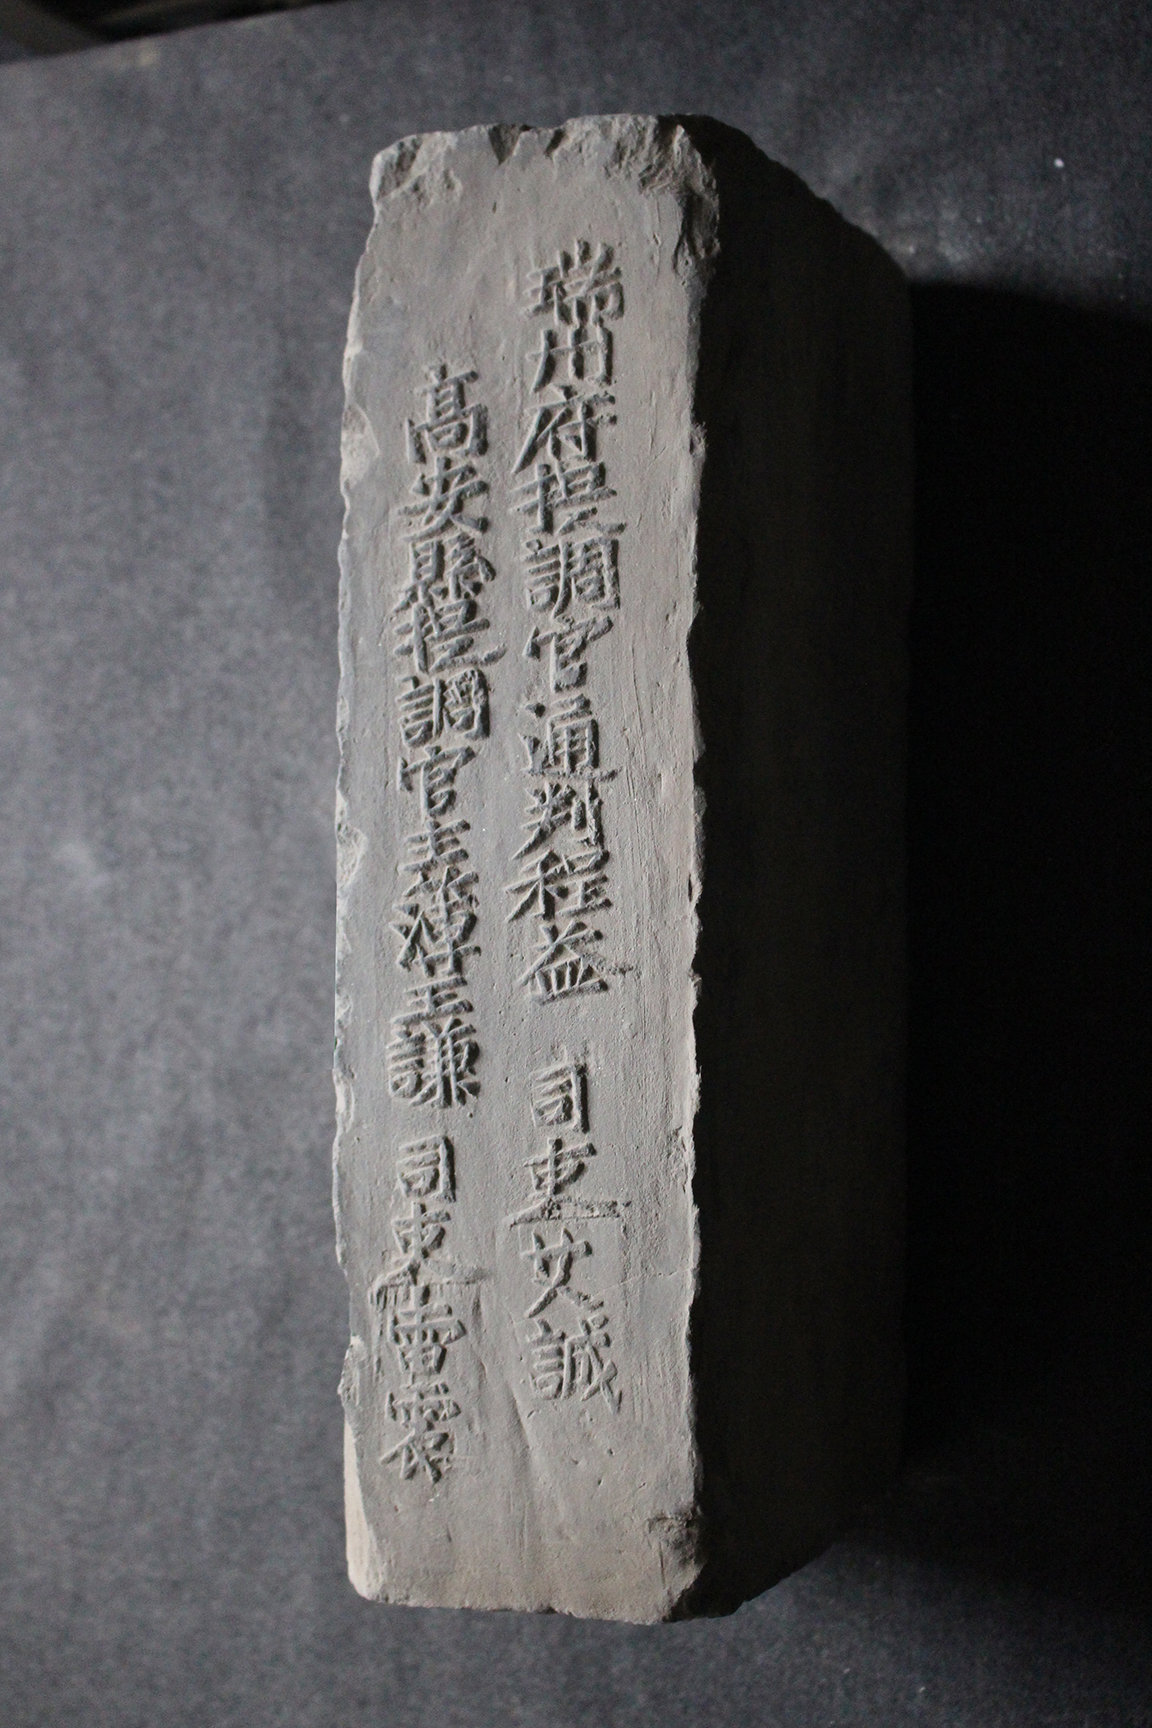 瑞州府提調官通判程益 司吏艾誠
高安縣提調官主簿王謙 司吏雷